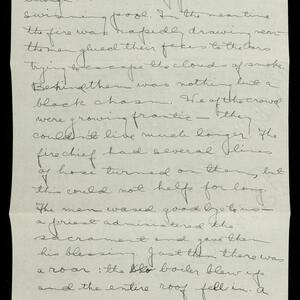 swimming pool. In the meantime
the fire was rapedly drawing near
the men glued their faces to the bars
trying to escape the clouds of smoke.
Behind them was nothing but a
black chasm. We of the crowd
were growing frantic — they
couldn't live much longer. The
fire chief had several lines
of hose turned on them, but
this could not help for long
The men waved goodbye to us —
a priest administered the
sacrament and gave them
his blessing. Just then there was
a roar: the boiler blew up
and the entire roof fell in. A